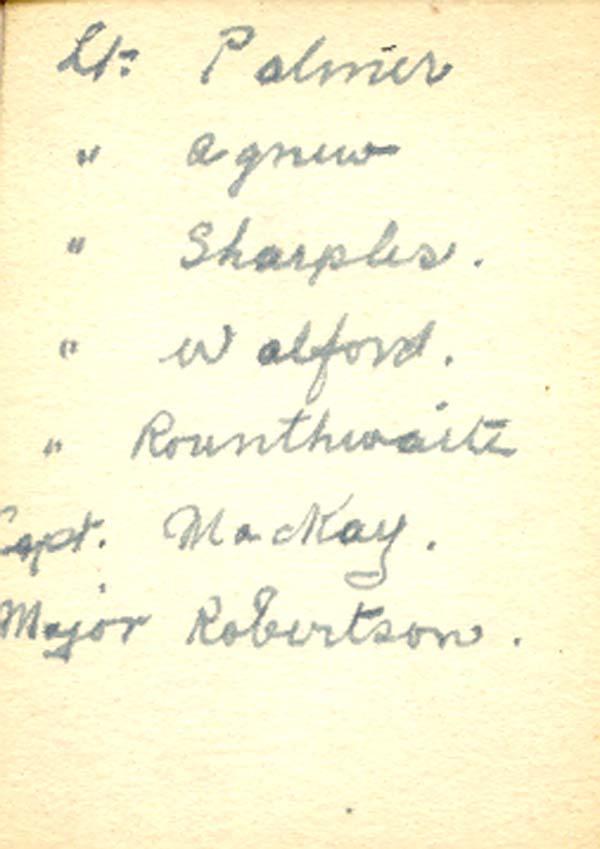 Lt. Palmer
" Agnew
" Sharples.
" Walford.
" Rounthwaite
Capt. MacKay.
Major Robertson.